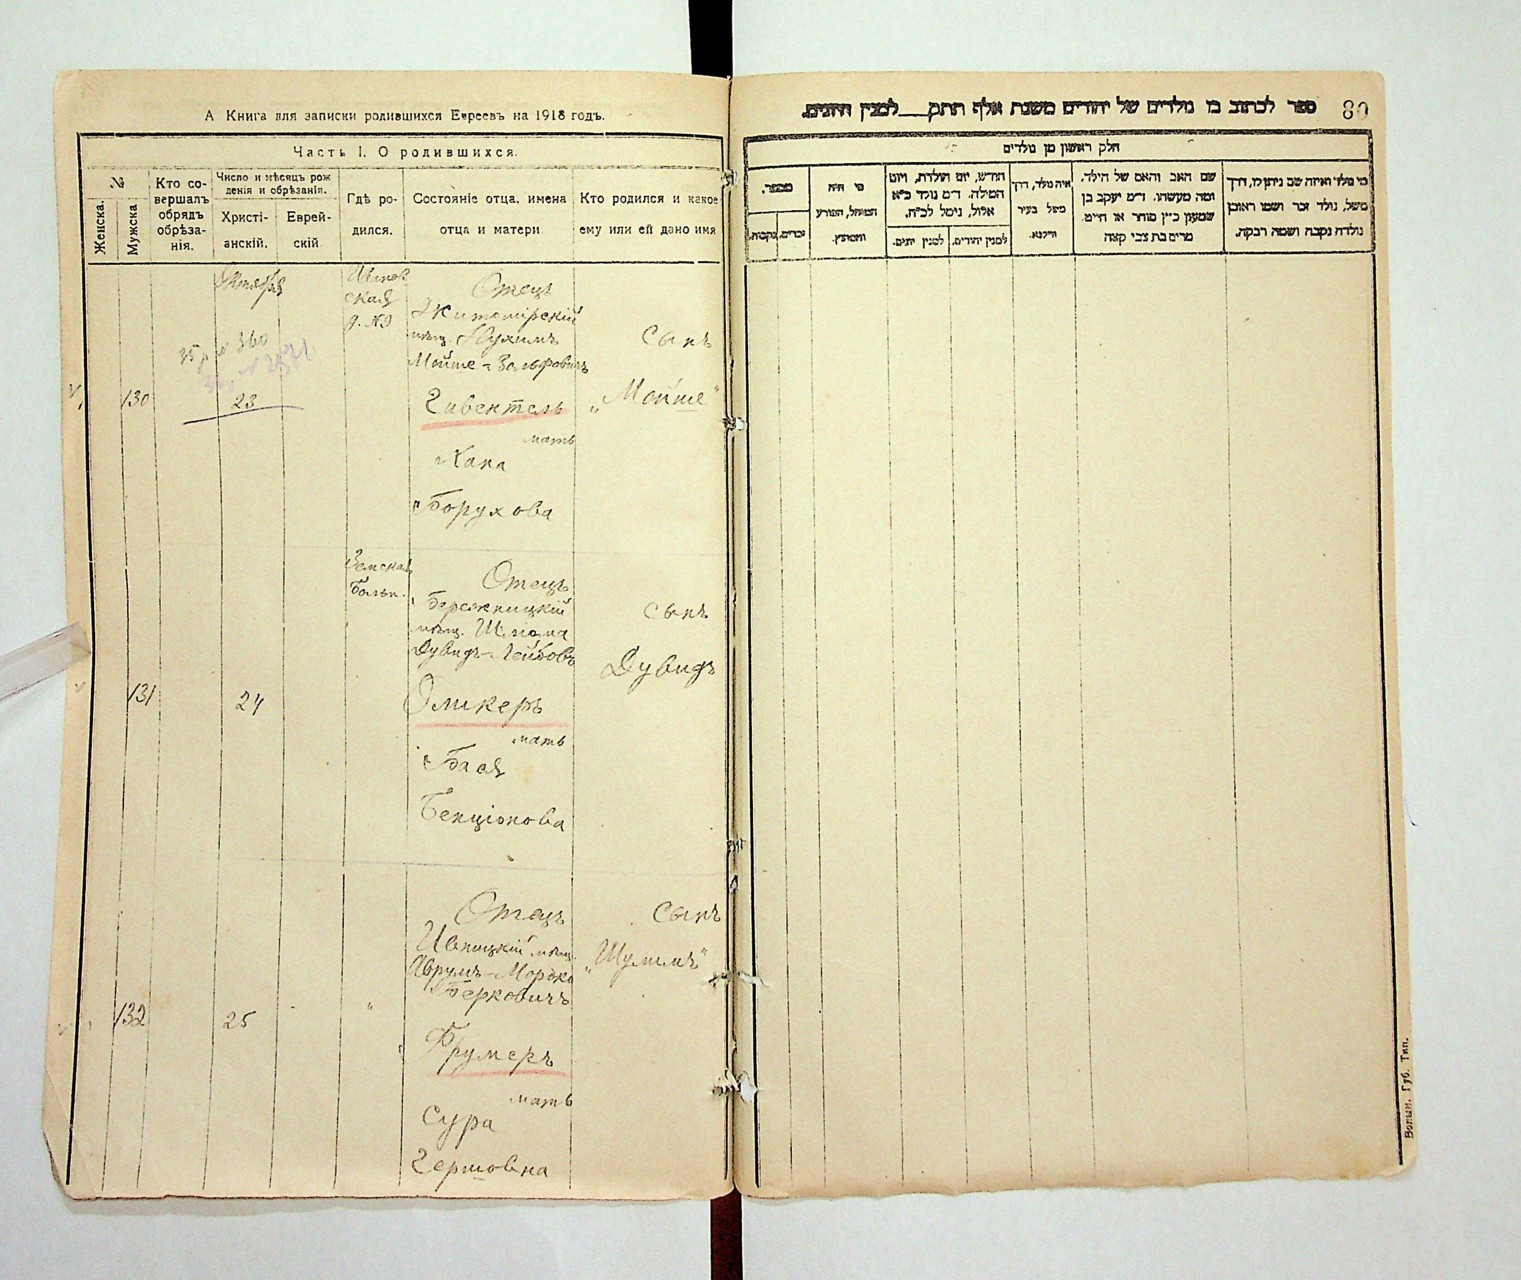 А Книга для записки родившихся Евреевъ на 1918 годъ.
Часть I. О родившихся.
№
Женска.
Мужска
Кто со-
вершалъ
обрядъ
обрѣза-
нія.
Число и мѣсяцъ рож
денія и обрѣзанія.
Христі-
анскій.
Еврей-
скій
Гдѣ ро-
дился.
Состояніе отца, имена
отца и матери
Кто родился и какое
ему или ей дано имя
Октября
д. №9
130
23
Отецъ
Житомірскій
мѣщ. Нухимъ
Мойше-Вольфовичъ
Гивентель
мать
Хана
Борухова
сынъ
„Мойше"
Земская
Больн.
131
24
Отецъ
Бережницкій
мѣщ. Шлема
Дувидъ-Лейбовъ
Оликеръ
мать
Бася
Бенціонова
сынъ
Дувидъ
132
25
"
Отецъ
Ивницкій мѣщ.
Аврумъ-Мордко
Берковичъ
Фрумеръ
мать
Сура
Гершовна
сынъ
„Шулимъ"
80
ספר לכתוב בו נולדים של יהודים משנת אלף תתק___למנין היונים.
חלק ראשון מן נולדים
מספר.
נקבות.
זכרים.
מי היה
המוהל, הפורע
והמוצץ.
החדש, יום הולדת, ויום
המילה. ד״מ נולד כ״א
אלול, נימל לכ״ח.
למנין יונים.
למנין יהודים.
איה נולד, דרך
משל בעיר
ווילנא.
שם האב והאם של הילד,
ומה מעשהו. ד״מ יעקב בן
שמעון כ״ץ סוחר או חייט.
מרים בת צבי קצה
מי נולד ואיזה שם ניתן לו, דרך
משל, נולד זכר ושמו ראובן
נולדה נקבה ושמה רבקה.
Волын. Губ. Тип.